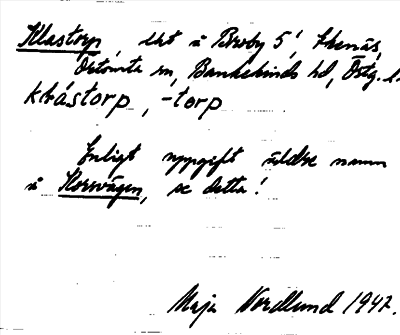 Klastorp, ext å Broby 5', Ekenäs,
Örtomta sn, Bankekinds hd, Östg. l.
klåstorp, -torp
Enligt uppgift äldre namn
å Korsvägen, se detta!
Maja Nordlund 1947.